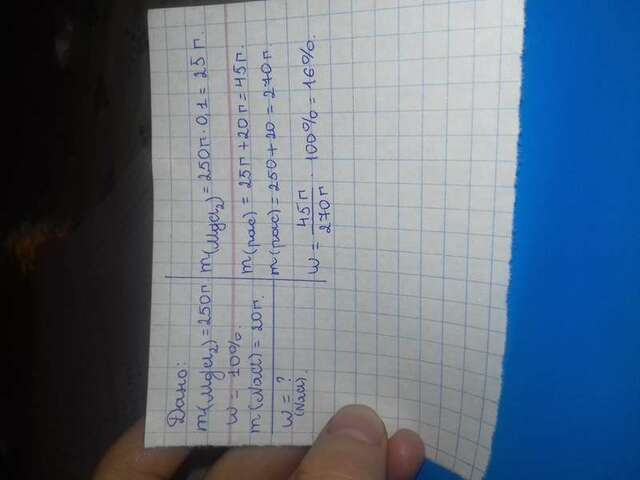 Дано:
m(MgCl₂)=250г
w = 10%.
m(NaCl)=20г.
w = ?
(NaCl)
m(MgCl₂)=250г·0,1=25г.
m(рас)=25г+20г=45г.
m(рас)=250+20=270г
w = 45г/270г · 100%=16%.